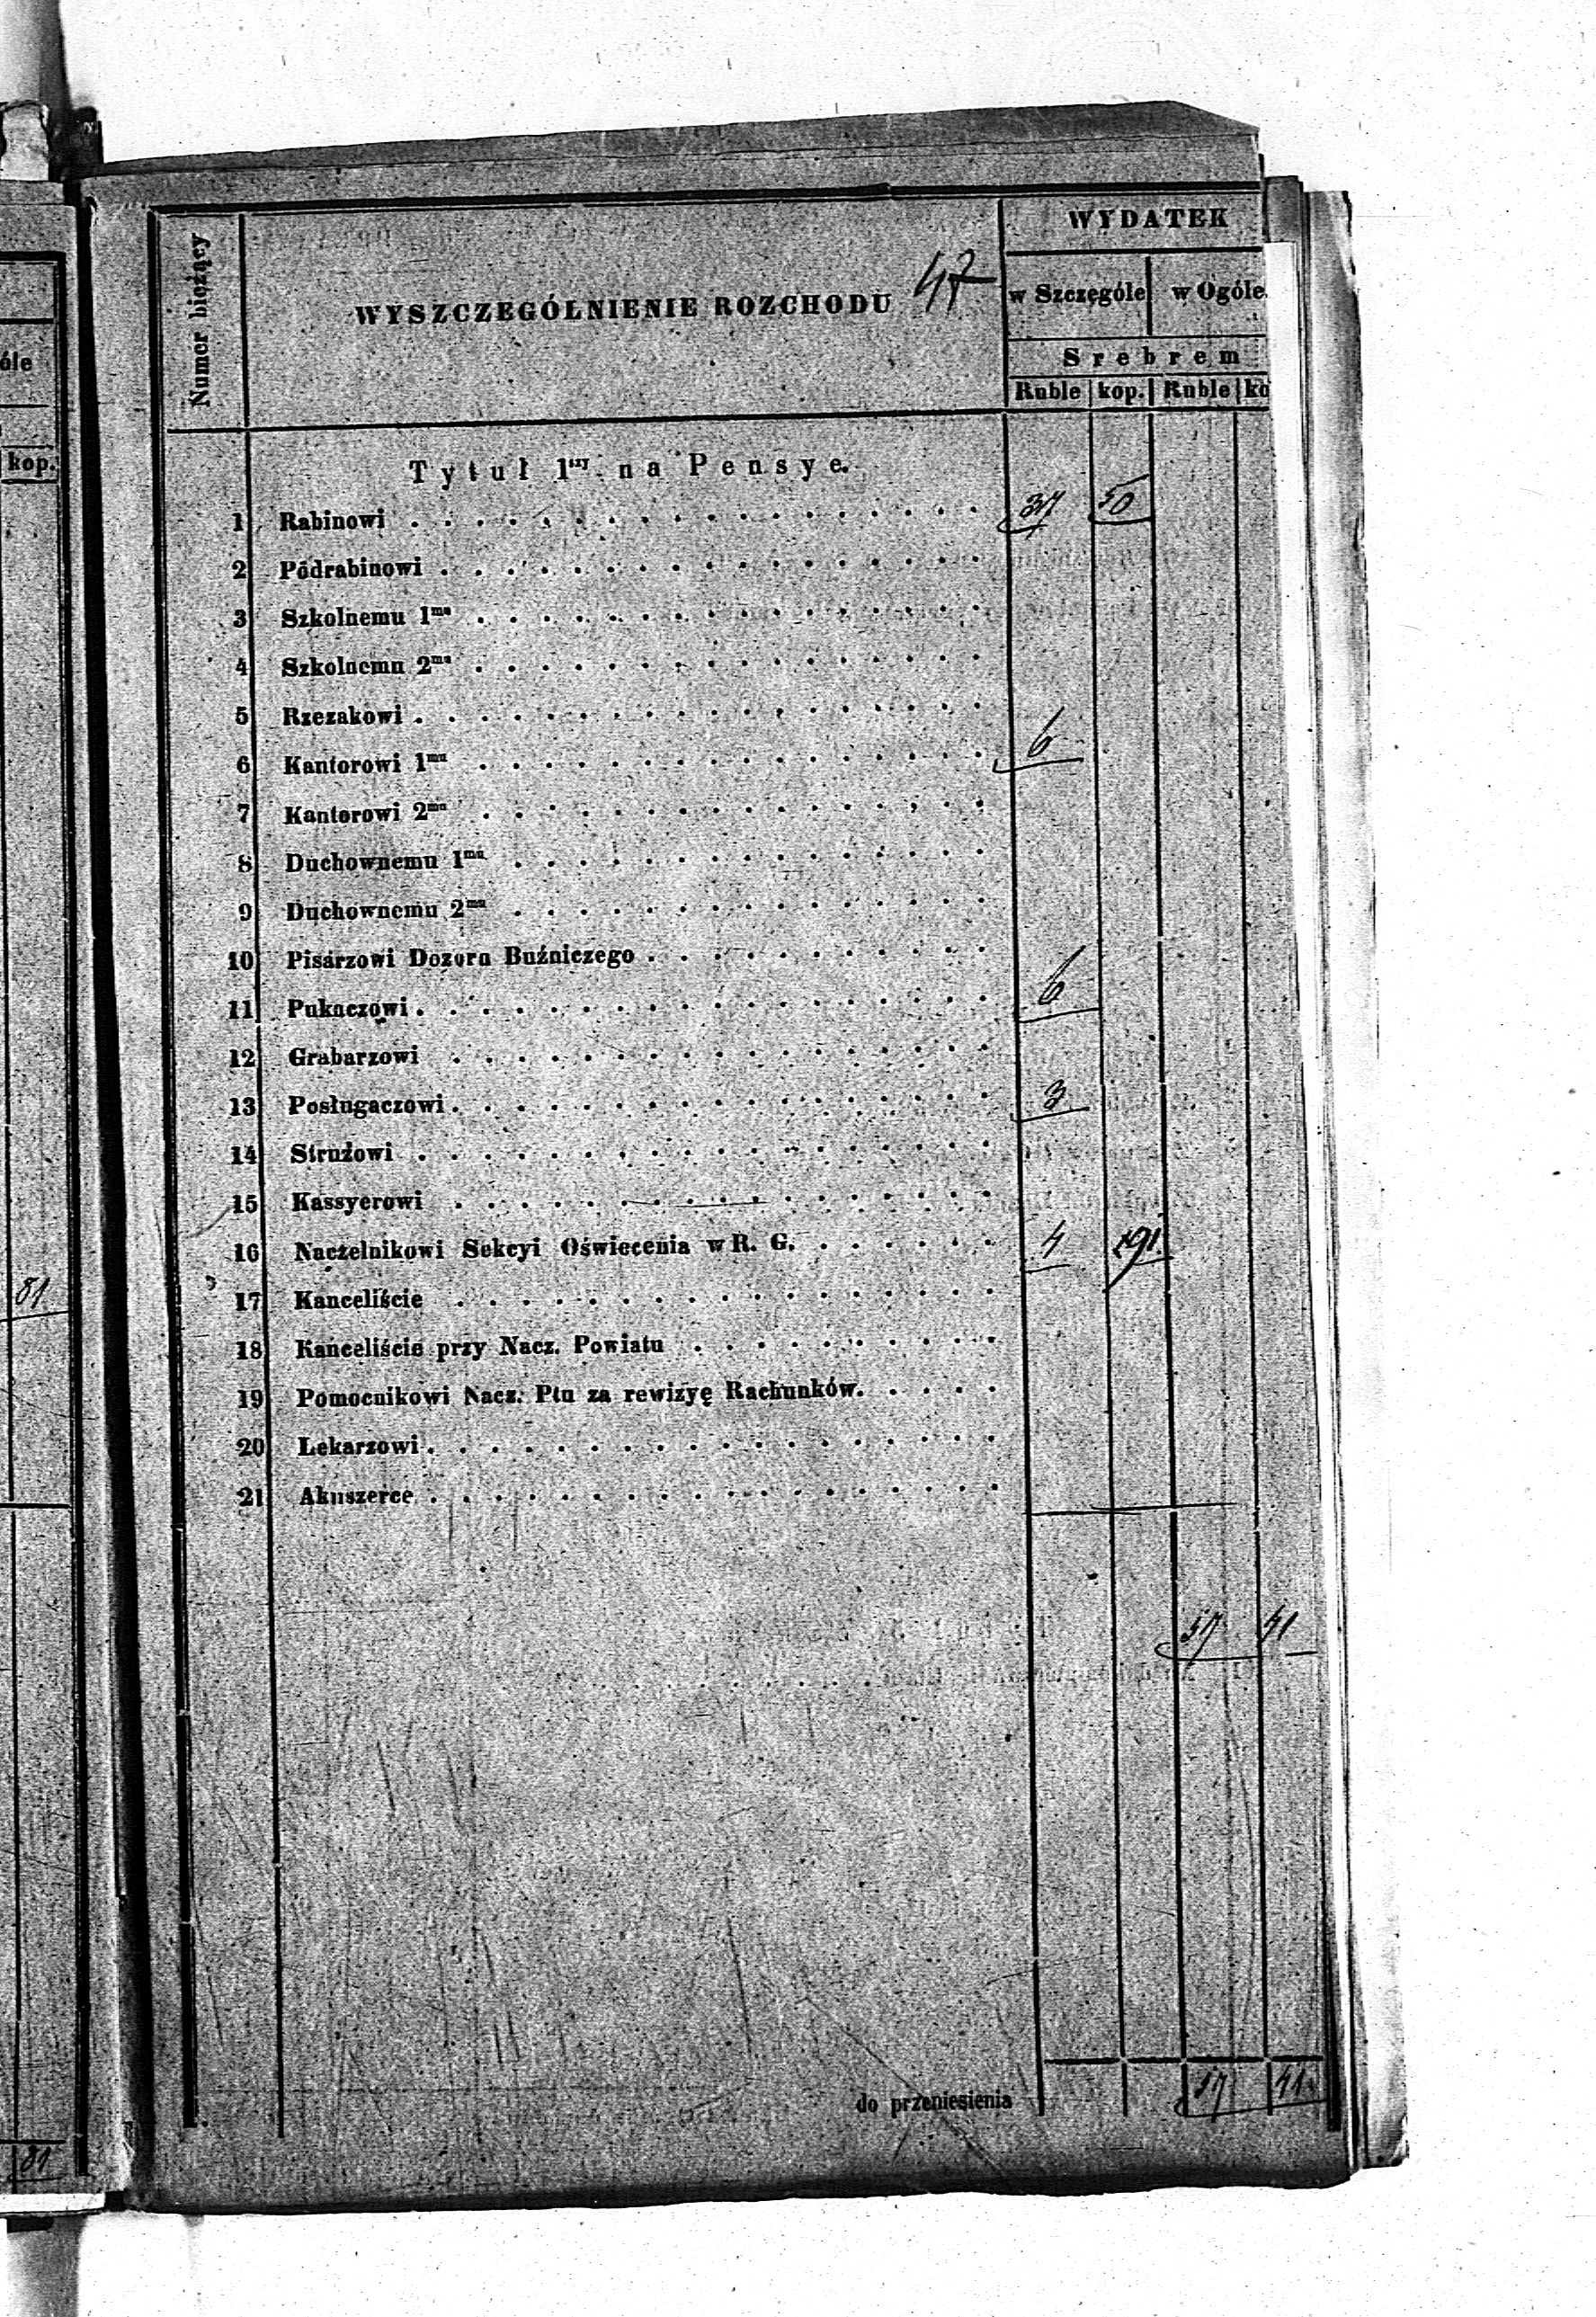 óle
kop.
81
81
Numer bieżący
WYSZCZEGÓLNIENIE ROZCHODU 47
WYDATEK
w Szczególe w Ogóle
Srebrem
Ruble kop. Ruble ko
Tytuł 1szy na Pensye.
1 Rabinowi 37 50
2 Podrabinowi
3 Szkolnemu 1mu
4 Szkolnemu 2mu
5 Rzezakowi
6 Kantorowi 1mu 6
7 Kantorowi 2mu
8 Duchownemu 1mu
9 Duchownemu 2mu
10 Pisarzowi Dozoru Buźniczego
11 Pukaczowi 6
12 Grabarzowi
13 Posługaczowi 3
14 Stružowi
15 Kassyerowi
16 Naczelnikowi Sekcyi Oświecenia w R. G. 4 91
17 Kanceliście
18 Kanceliście przy Nacz. Powiatu
19 Pomocnikowi Nacz. Ptu za rewizyę Rachunków.
20 Lekarzowi
21 Akuszerce
57 41
do przeniesienia 57 41